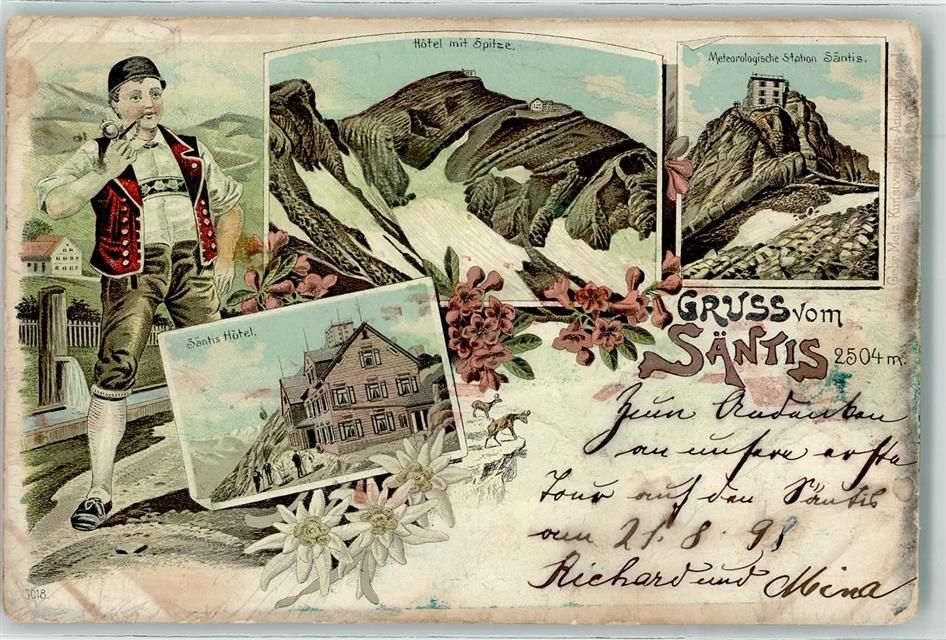 Hôtel mit Spitze.
Meteorologische Station Säntis.
Säntis Hôtel.
GRUSS vom
SÄNTIS 2504 m.
Zum Andenken
an unsere erste
Tour auf den Säntis
am 21. 8. 98
Richard und Mina